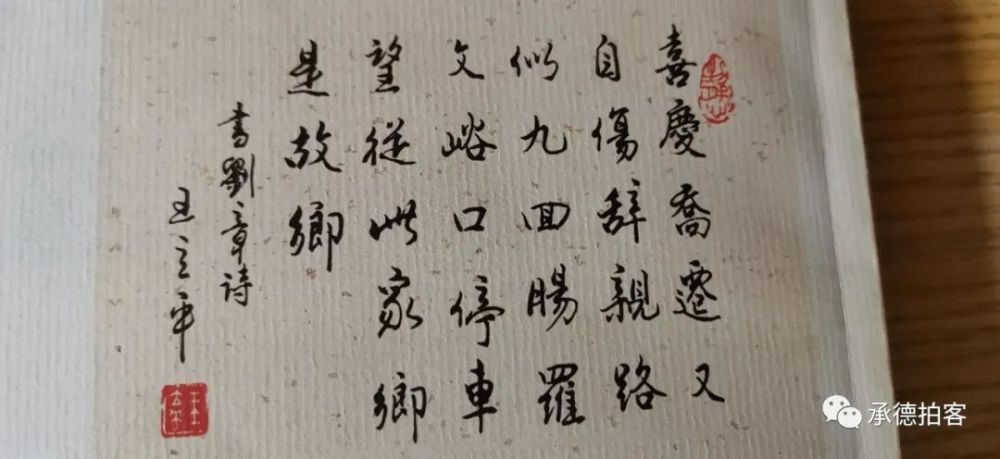 喜慶喬遷又
自傷辞親路
似九回腸羅
文峪口停車
望從此家鄉
是故鄉
書劉章詩
王立平
承德拍客